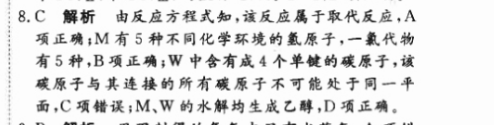 8. C 解析 由反应方程式知,该反应属于取代反应,A
项正确;M有5种不同化学环境的氢原子,一氯代物
有5种,B项正确;W中含有成4个单键的碳原子,该
碳原子与其连接的所有碳原子不可能处于同一平
面,C项错误;M、W的水解均生成乙醇,D项正确。